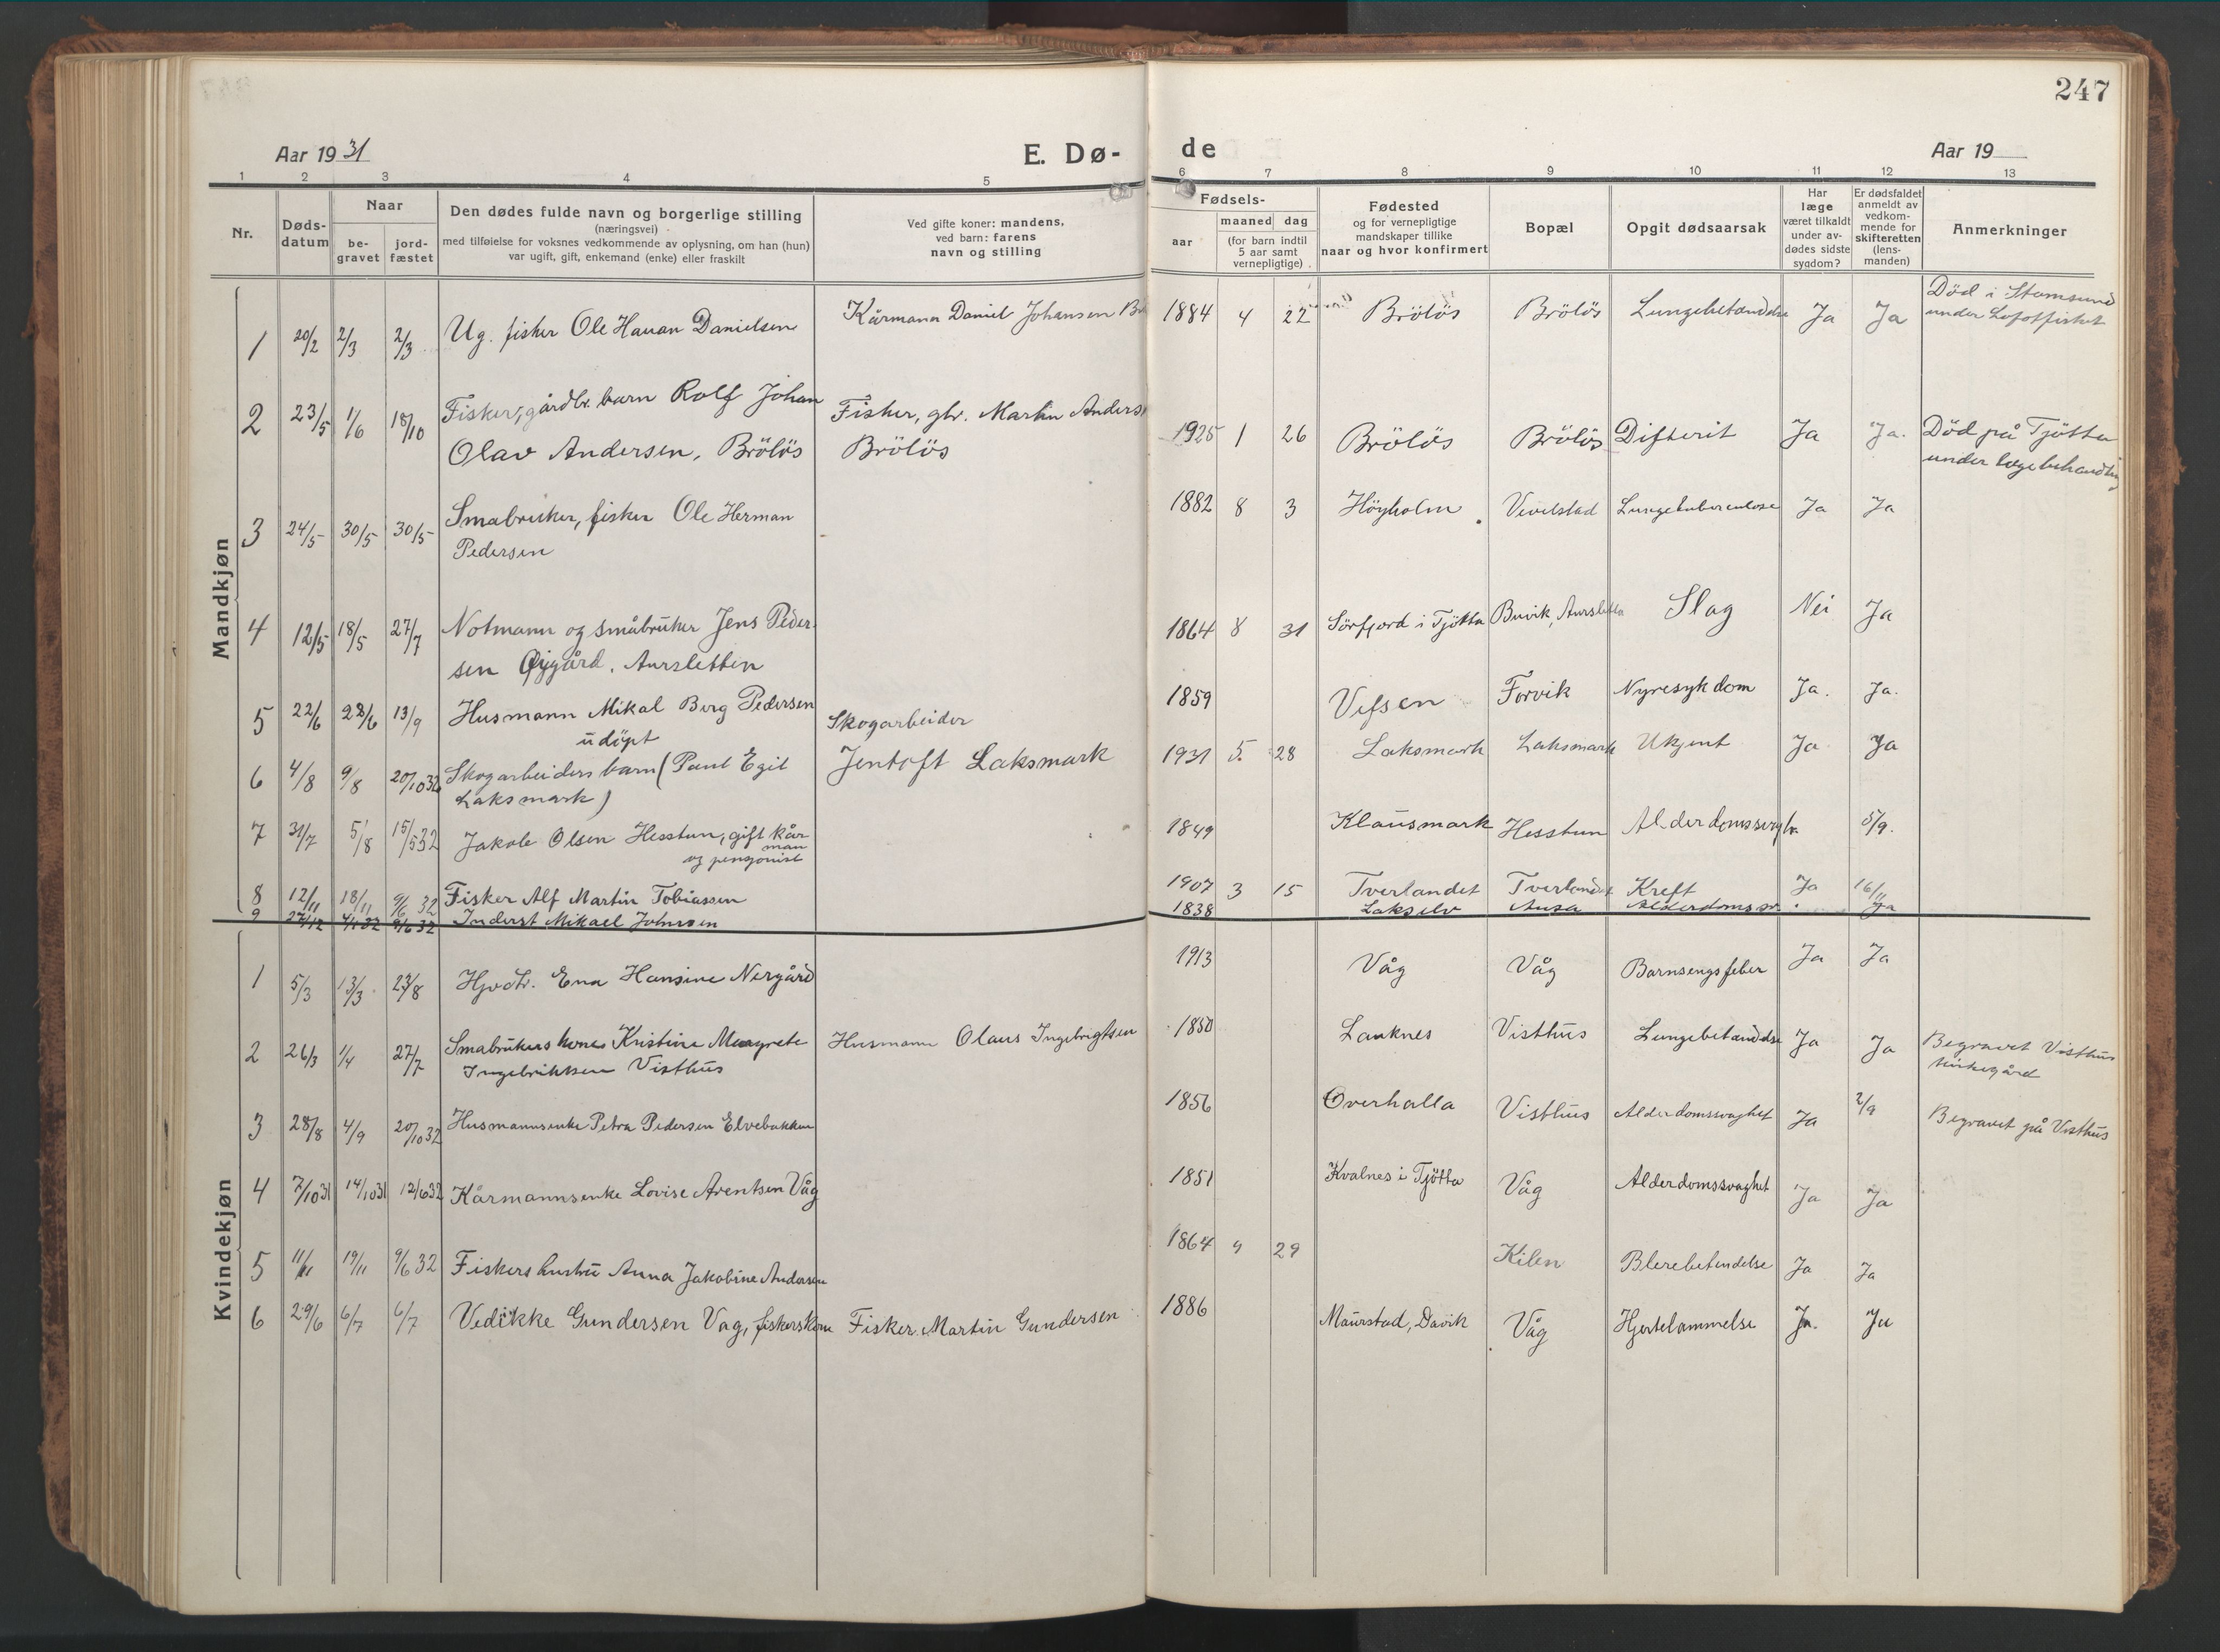 247
Aar 1931
E. Dø-
de
Aar 19
1 2 3 4 5 6 7 8 9 10 11 12 13
Nr.
Døds-
datum
Naar
be-
gravet
jord-
fæstet
Den dødes fulde navn og borgerlige stilling
(næringsvei)
med tilføielse for voksnes vedkommende av oplysning, om han (hun)
var ugift, gift, enkemand (enke) eller fraskilt
Ved gifte koner: mandens,
ved barn: farens
navn og stilling
Fødsels-
aar
maaned dag
(for barn indtil
5 aar samt
vernepligtige)
Fødested
og for vernepligtige
mandskaper tillike
naar og hvor konfirmert
Bopæl
Opgit dødsaarsak
Har
læge
været tilkaldt
under av-
dødes sidste
sygdom?
Er dødsfaldet
anmeldt av
vedkom-
mende for
skifteretten
(lens-
manden)
Anmerkninger
Mandkjøn
1 20/2 2/3 2/3 Ug. fisker Ole Hauan Danielsen Kårmann Daniel Johansen 1884 4 22 Brölös Brölös Lungebetændelse Ja Ja Död i Stamsund
under Lofotfisket
2 23/5 1/6 18/10 Fisker, gårdbr. barn Rolf Johan Fisker, gbr. Martin Anders 1925 1 26 Brölös Brölös Difterit Ja Ja. Död på Tjötta
Olav Andersen, Brölös Brölös under lægebehandling
3 24/5 30/5 30/5 Småbruker, fisker Ole Herman 1882 8 3 Höyholm Vevelstad Lungetuberculose Ja Ja
Pedersen
4 12/5 18/5 27/7 Notmann og småbruker Jens Peder- 1864 8 31 Sörfjord i Tjötta Buvik, Aursletta Slag Nei Ja
sen Øygård, Aursletten
5 22/6 28/6 13/9 Husmann Mikal Berg Pedersen 1859 Vefsen Forvik Nyresykdom Ja. Ja.
udöpt Skogarbeider
6 4/8 9/8 20/10 32 Skogarbeiders barn (Paul Egil Jentoft Laksmark 1931 5. 28 Laksmark Laksmark Ukjent Ja Ja
Laksmark)
7 31/7 5/8 15/5 32 Jakob Olsen Hesstun, gift kår- 1849 Klausmark Hesstun 5/9.
man
og pensjonist
8 12/11 18/11 9/6 32 Fisker Alf Martin Tobiassen 1907 3 15 Tverlandet Tverlandet Kreft Ja 16/11
9 27/12 4/1 32 9/6 32 Inderst Mikael Johnsen 1838 Lakselv Ausa Alderdomssv. Ja
Kvindekjøn
1 5/3 13/3 23/8 Hjvdtr. Ena Hansine Nergård 1913 Våg Våg Barnsengsfeber Ja Ja
2 26/3 1/4 27/7 Småbrukers kone Kristine Margrete Husmann Olaus Ingebrigtsen 1850 Lauknes Visthus Lungebetændelse Ja Ja Begravet Visthus
Ingebriktsen Visthus kirkegård
3 28/8 4/9 20/10 32 Husmannsenke Petra Pedersen Elvebakken 1856 Overhalla Visthus Alderdomssvaghet Ja 2/9 Begravet på Visthus
4 7/10 31 14/10 31 12/6 32 Kårmannsenke Lovise Arentsen Våg 1851 Kvalnes i Tjötta Våg Alderdomssvaghet Ja Ja
5 11/11 19/11 9/6 32 Fiskers hustru Anna Jakobine Andersen 1864 9 29 Kilen Blerebetendelse Ja Ja
6 29/6 6/7 6/7 Vedikke Gundersen Vag, fiskerskone Fisker Martin Gundersen 1886 Maurstad, Davik Våg Hjertelammelse Ja. Ja